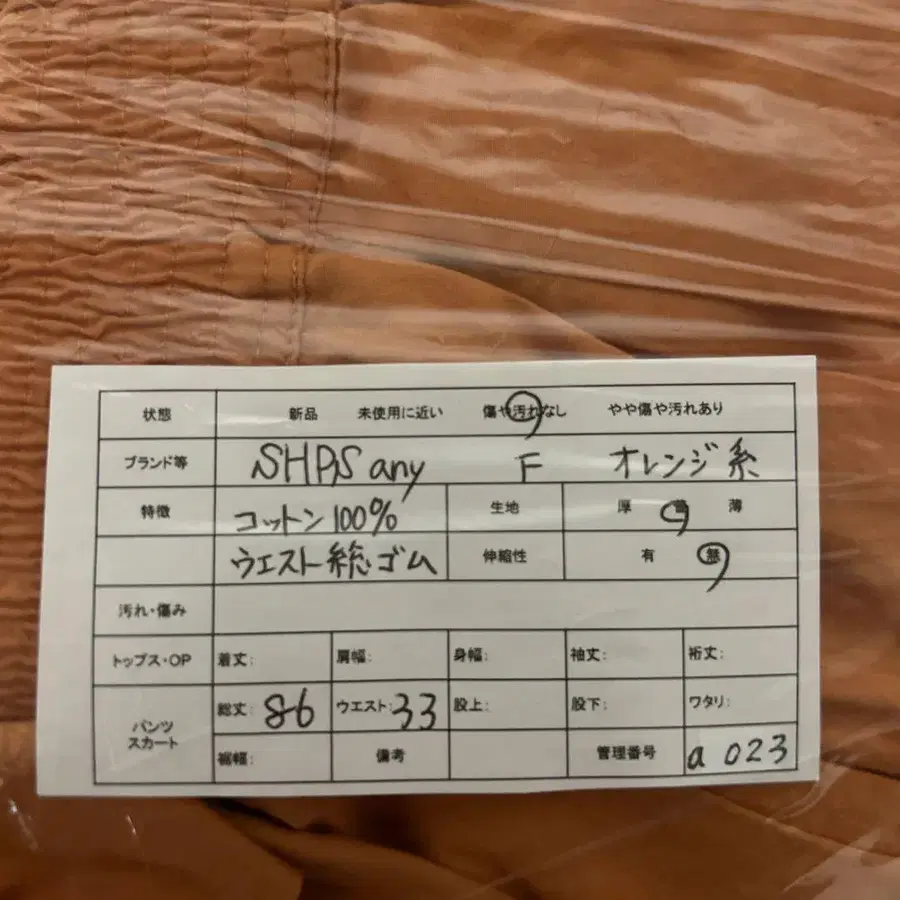 状態 新品 未使用に近い 傷や汚れなし やや傷や汚れあり
ブランド等 SHPS any F オレンジ系
特徴 コットン100% 生地 厚 普 薄
ウエスト総ゴム 伸縮性 有 無
汚れ・傷み
トップス・OP 着丈: 肩幅: 身幅: 袖丈: 裄丈:
パンツ スカート 総丈: 86 ウエスト: 33 股上: 股下: ワタリ:
裾幅: 備考 管理番号 a 023